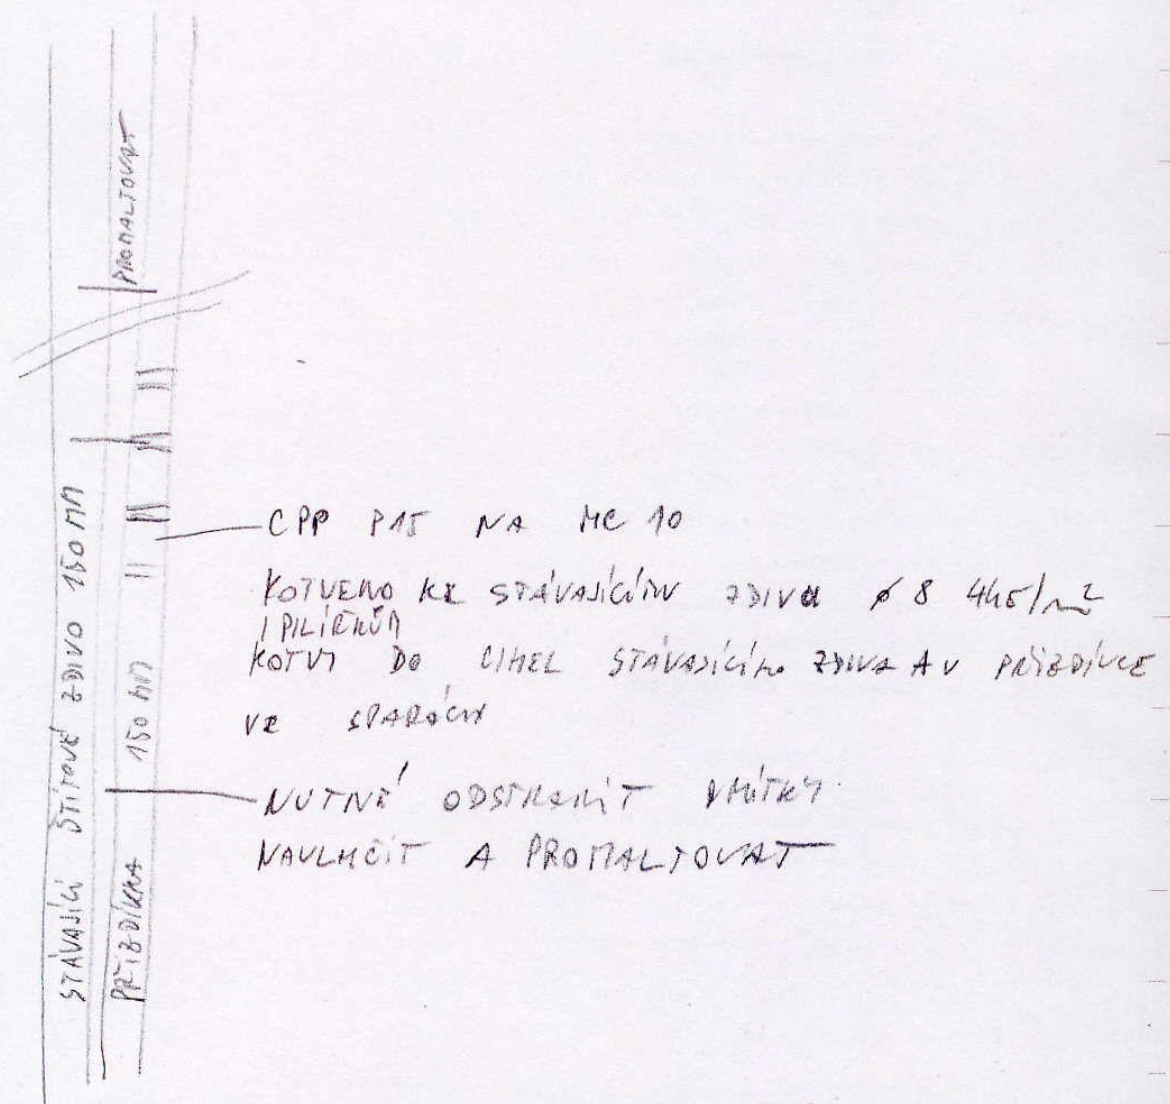 PROMALTOVAT
STÁVAJÍCÍ ŠTÍTOVÉ ZDIVO 150 MM
PŘIZDÍVKA 150 MM
CPP P15 NA MC 10
KOTVENO KE STÁVAJÍCÍMU ZDIVU ø 8 4KS/m²
I PILÍŘKŮM
KOTVY DO CIHEL STÁVAJÍCÍHO ZDIVA A V PŘIZDÍVCE
VE SPARÁCH
NUTNÉ ODSTRANIT OMÍTKY
NAVLHČIT A PROMALTOVAT